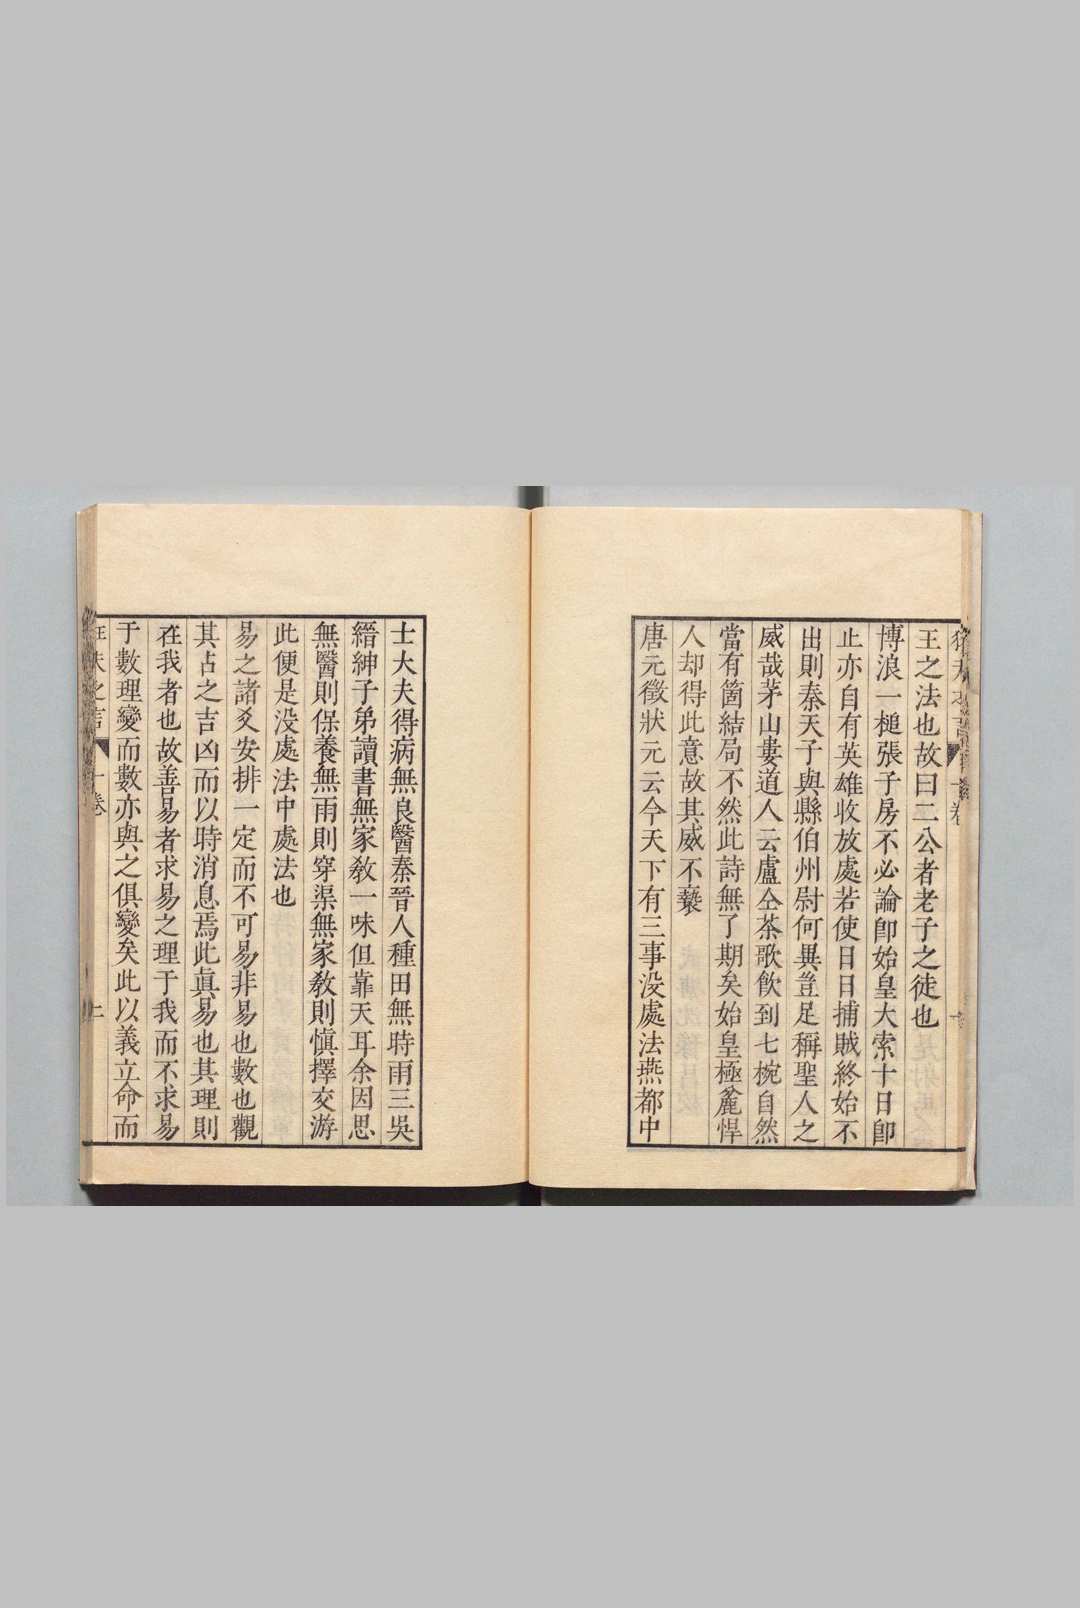 王之法也故曰二公者老子之徒也
博浪一槌張子房不必論卽始皇大索十日卽
止亦自有英雄收放處若使日日捕賊終始不
出則秦天子與縣伯州尉何異豈足稱聖人之
威哉茅山婁道人云盧仝茶歌飲到七椀自然
當有箇結局不然此詩無了期矣始皇極麄悍
人却得此意故其威不褻
唐元徵狀元云今天下有三事没處法燕都中
士大夫得病無良醫秦晉人種田無時雨三吳
縉紳子弟讀書無家敎一味但靠天耳余因思
無醫則保養無雨則穿渠無家敎則慎擇交游
此便是没處法中處法也
易之諸爻安排一定而不可易非易也數也觀
其占之吉凶而以時消息焉此眞易也其理則
在我者也故善易者求易之理于我而不求易
于數理變而數亦與之俱變矣此以義立命而
狂夫之言 十卷 上